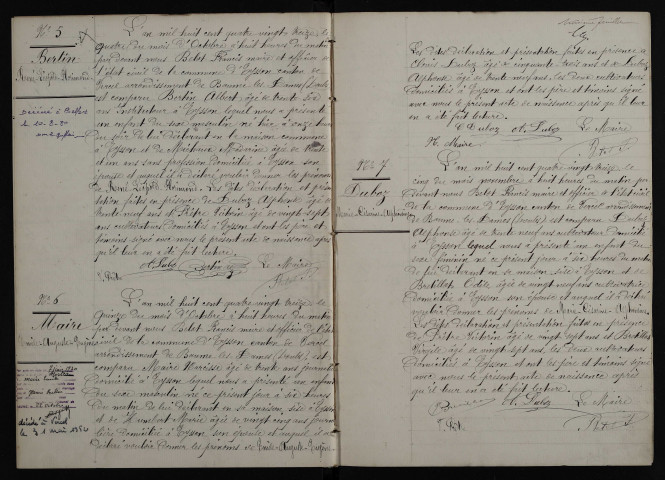 N° 5
Bertin
L'an mil huit cent quatre vingt treize le
quatre du mois d'Octobre à huit heures du matin
par devant nous Belot François maire et officier de
l'état civil de la commune d'Eysson canton de
arrondissement de Baume les Dames (Doubs)
est comparu Bertin Albert âgé de trente six
ans instituteur à Eysson lequel nous a présenté
un enfant du sexe masculin né hier à onze heures
du soir de lui déclarant en la maison commune
d'Eysson et de
et un ans sans profession domiciliée à Eysson son
épouse et auquel il a déclaré vouloir donner les prénoms
de René Léopold Raimond. Les dites déclaration et présentation
faites en présence de Duboz Alphonse âgé de
trente neuf ans et Pêtre Victor âgé de vingt sept
ans cultivateurs domiciliés à Eysson et ont les père et
témoins signé avec nous le présent acte de naissance après
qu'il leur en a été fait lecture.
A. Duboz Bertin Le Maire
N° 6
Maire
Emile-Auguste-Eugène
L'an mil huit cent quatre vingt treize le
quinze du mois d'Octobre à huit heures du matin
par devant nous Belot François maire et officier de l'état
civil de la commune d'Eysson canton de Vercel
arrondissement de Baume les Dames (Doubs) est
comparu Maire Narcisse âgé de trente ans journalier
domicilié à Eysson lequel nous a présenté un enfant
du sexe masculin né ce présent jour à six heures
du matin de lui déclarant en sa maison sise à Eysson
et de Humbert Marie âgée de vingt cinq ans journalière
domiciliée à Eysson son épouse et auquel il a
déclaré vouloir donner les prénoms de Emile-Auguste-Eugène
décédé à Vercel
le 31 mai 1954
Les dites déclaration et présentation faites en présence de
Duboz âgé de cinquante trois ans et Duboz
Alphonse âgé de trente neuf ans les deux cultivateurs
domiciliés à Eysson et ont les père et témoins signé
avec nous le présent acte de naissance après qu'il leur
en a été fait lecture.
C. Duboz A. Duboz Le Maire
N. Maire
N° 7
Duboz
L'an mil huit cent quatre vingt treize le
cinq du mois novembre à huit heures du matin par
devant nous Belot François maire et officier de l'état civil
de la commune d'Eysson canton de Vercel arrondissement
de Baume les Dames (Doubs) est comparu Duboz
Alphonse âgé de trente neuf ans cultivateur domicilié
à Eysson lequel nous a présenté un enfant du
sexe féminin né ce présent jour à dix heures du matin
de lui déclarant en sa maison sise à Eysson et de
Bretillot Odile âgée de vingt neuf ans cultivatrice
domiciliée à Eysson son épouse et auquel il a déclaré
vouloir donner les prénoms de
Les dites déclaration et présentation faites en présence
de Pêtre Victor âgé de vingt sept ans et Bretillot
Virgile âgé de vingt sept ans, les deux cultivateurs
domiciliés à Eysson et ont les père et témoins signé
avec nous le présent acte de naissance après
qu'il leur en a été fait lecture.
A. Duboz Le Maire